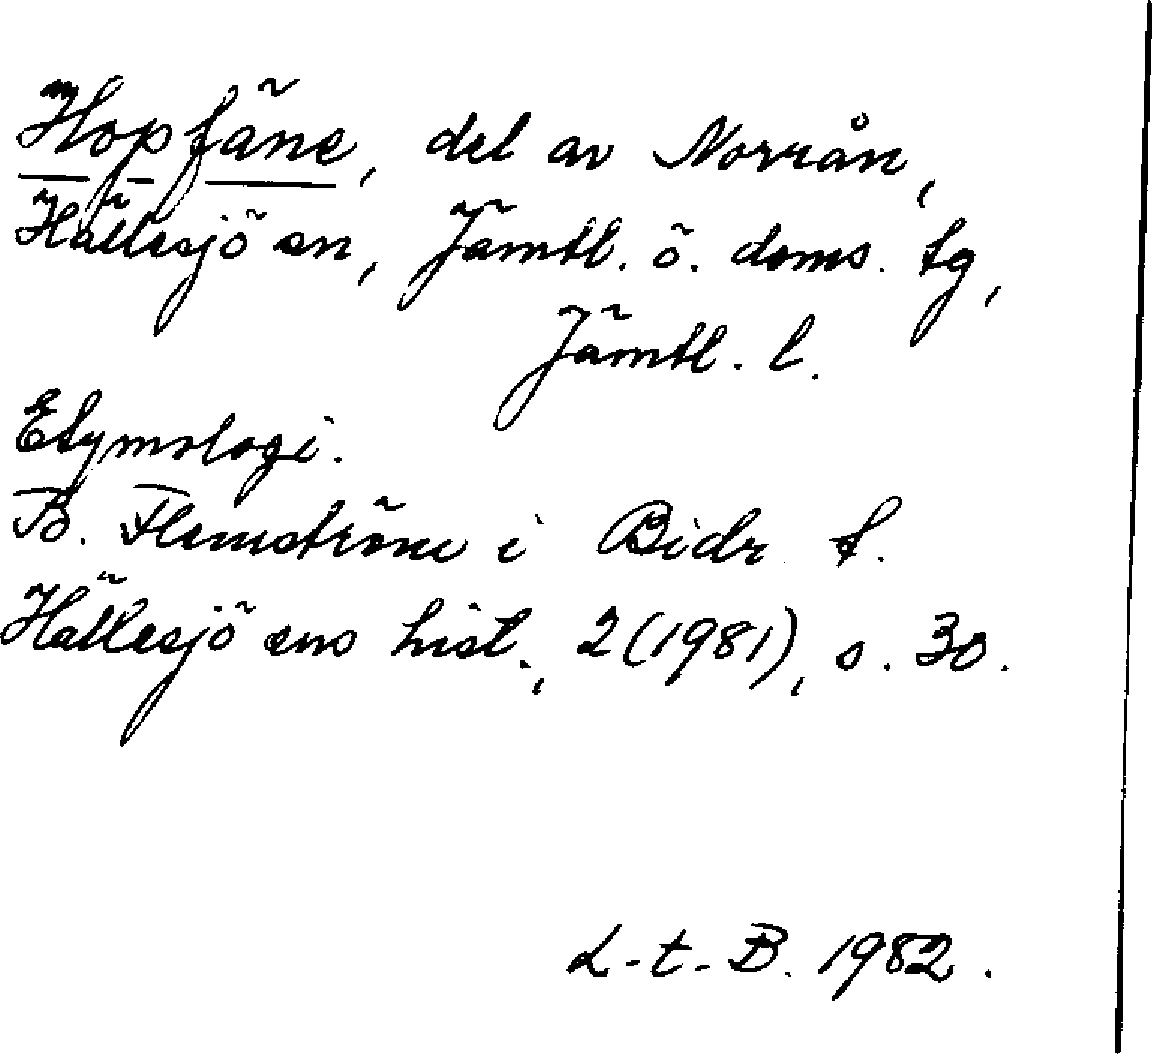 Hopfäne, del av Norrån,
Hällesjö sn, Jämtl. ö. doms. tg,
Jämtl. l.
Etymologi.
B. Flemström i Bidr t.
Hällesjö sns hist., 2 (1981), s. 30.
L-t-B. 1982.